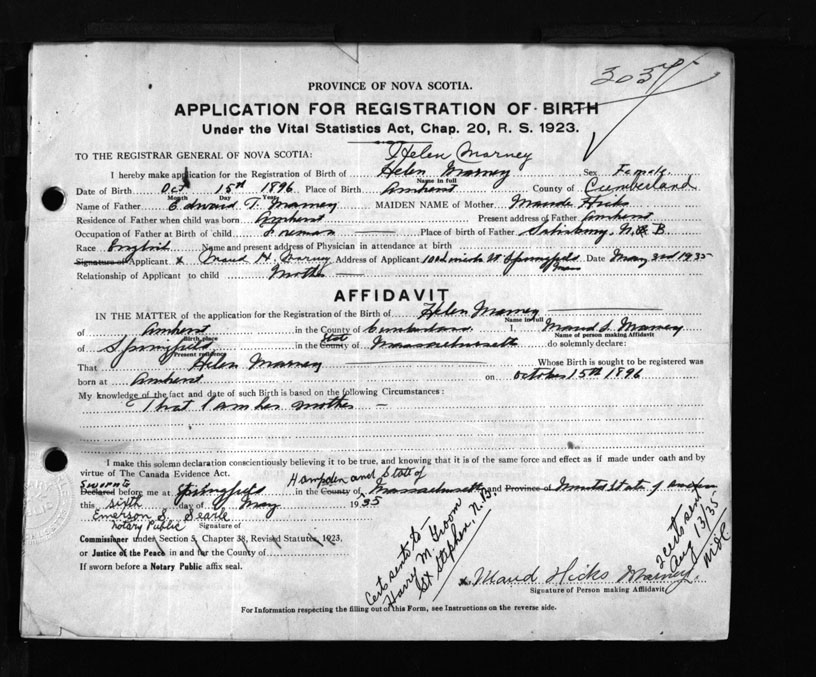 3037
PROVINCE OF NOVA SCOTIA.
APPLICATION FOR REGISTRATION OF BIRTH
Under the Vital Statistics Act, Chap. 20, R. S. 1923.
TO THE REGISTRAR GENERAL OF NOVA SCOTIA: Helen Marney
I hereby make application for the Registration of Birth of Helen Marney Sex Female
Name in full
Date of Birth Oct 15th 1896 Place of Birth Amherst County of Cumberland
Month Day Year
Name of Father Edward T. Marney MAIDEN NAME of Mother Maude Hicks
Residence of Father when child was born Amherst Present address of Father Amherst
Occupation of Father at Birth of child Foreman Place of birth of Father Salisbury, N.B.
Race English Name and present address of Physician in attendance at birth
Signature of Applicant x Maud H. Marney Address of Applicant Springfield Mass Date May 3rd 1935
Relationship of Applicant to child Mother
AFFIDAVIT
IN THE MATTER of the application for the Registration of the Birth of Helen Marney
Name in full
of Amherst in the County of Cumberland I, Maud Marney
Birth place Name of person making Affidavit
of Springfield in the County State of Massachusetts do solemnly declare:
Present residence
That Helen Marney Whose Birth is sought to be registered was
born at Amherst on October 15th 1896
My knowledge of the fact and date of such Birth is based on the following Circumstances:
That I am her mother
I make this solemn declaration conscientiously believing it to be true, and knowing that it is of the same force and effect as if made under oath and by
virtue of The Canada Evidence Act. Hampden and State of
Sworn to
Declared before me at Springfield in the County of Massachusetts and Province of United States of America
this sixth day of May 1935
Emerson S. Searle
Notary Public Signature of
Commissioner under Section 5, Chapter 38, Revised Statutes, 1923,
or Justice of the Peace in and for the County of
If sworn before a Notary Public affix seal.
Cert sent to
Harry M. Groom
St Stephen, N.B.
2 certs sent
Aug 13/35
x Maud Hicks Marney
Signature of Person making Affidavit
For Information respecting the filling out of this Form, see Instructions on the reverse side.